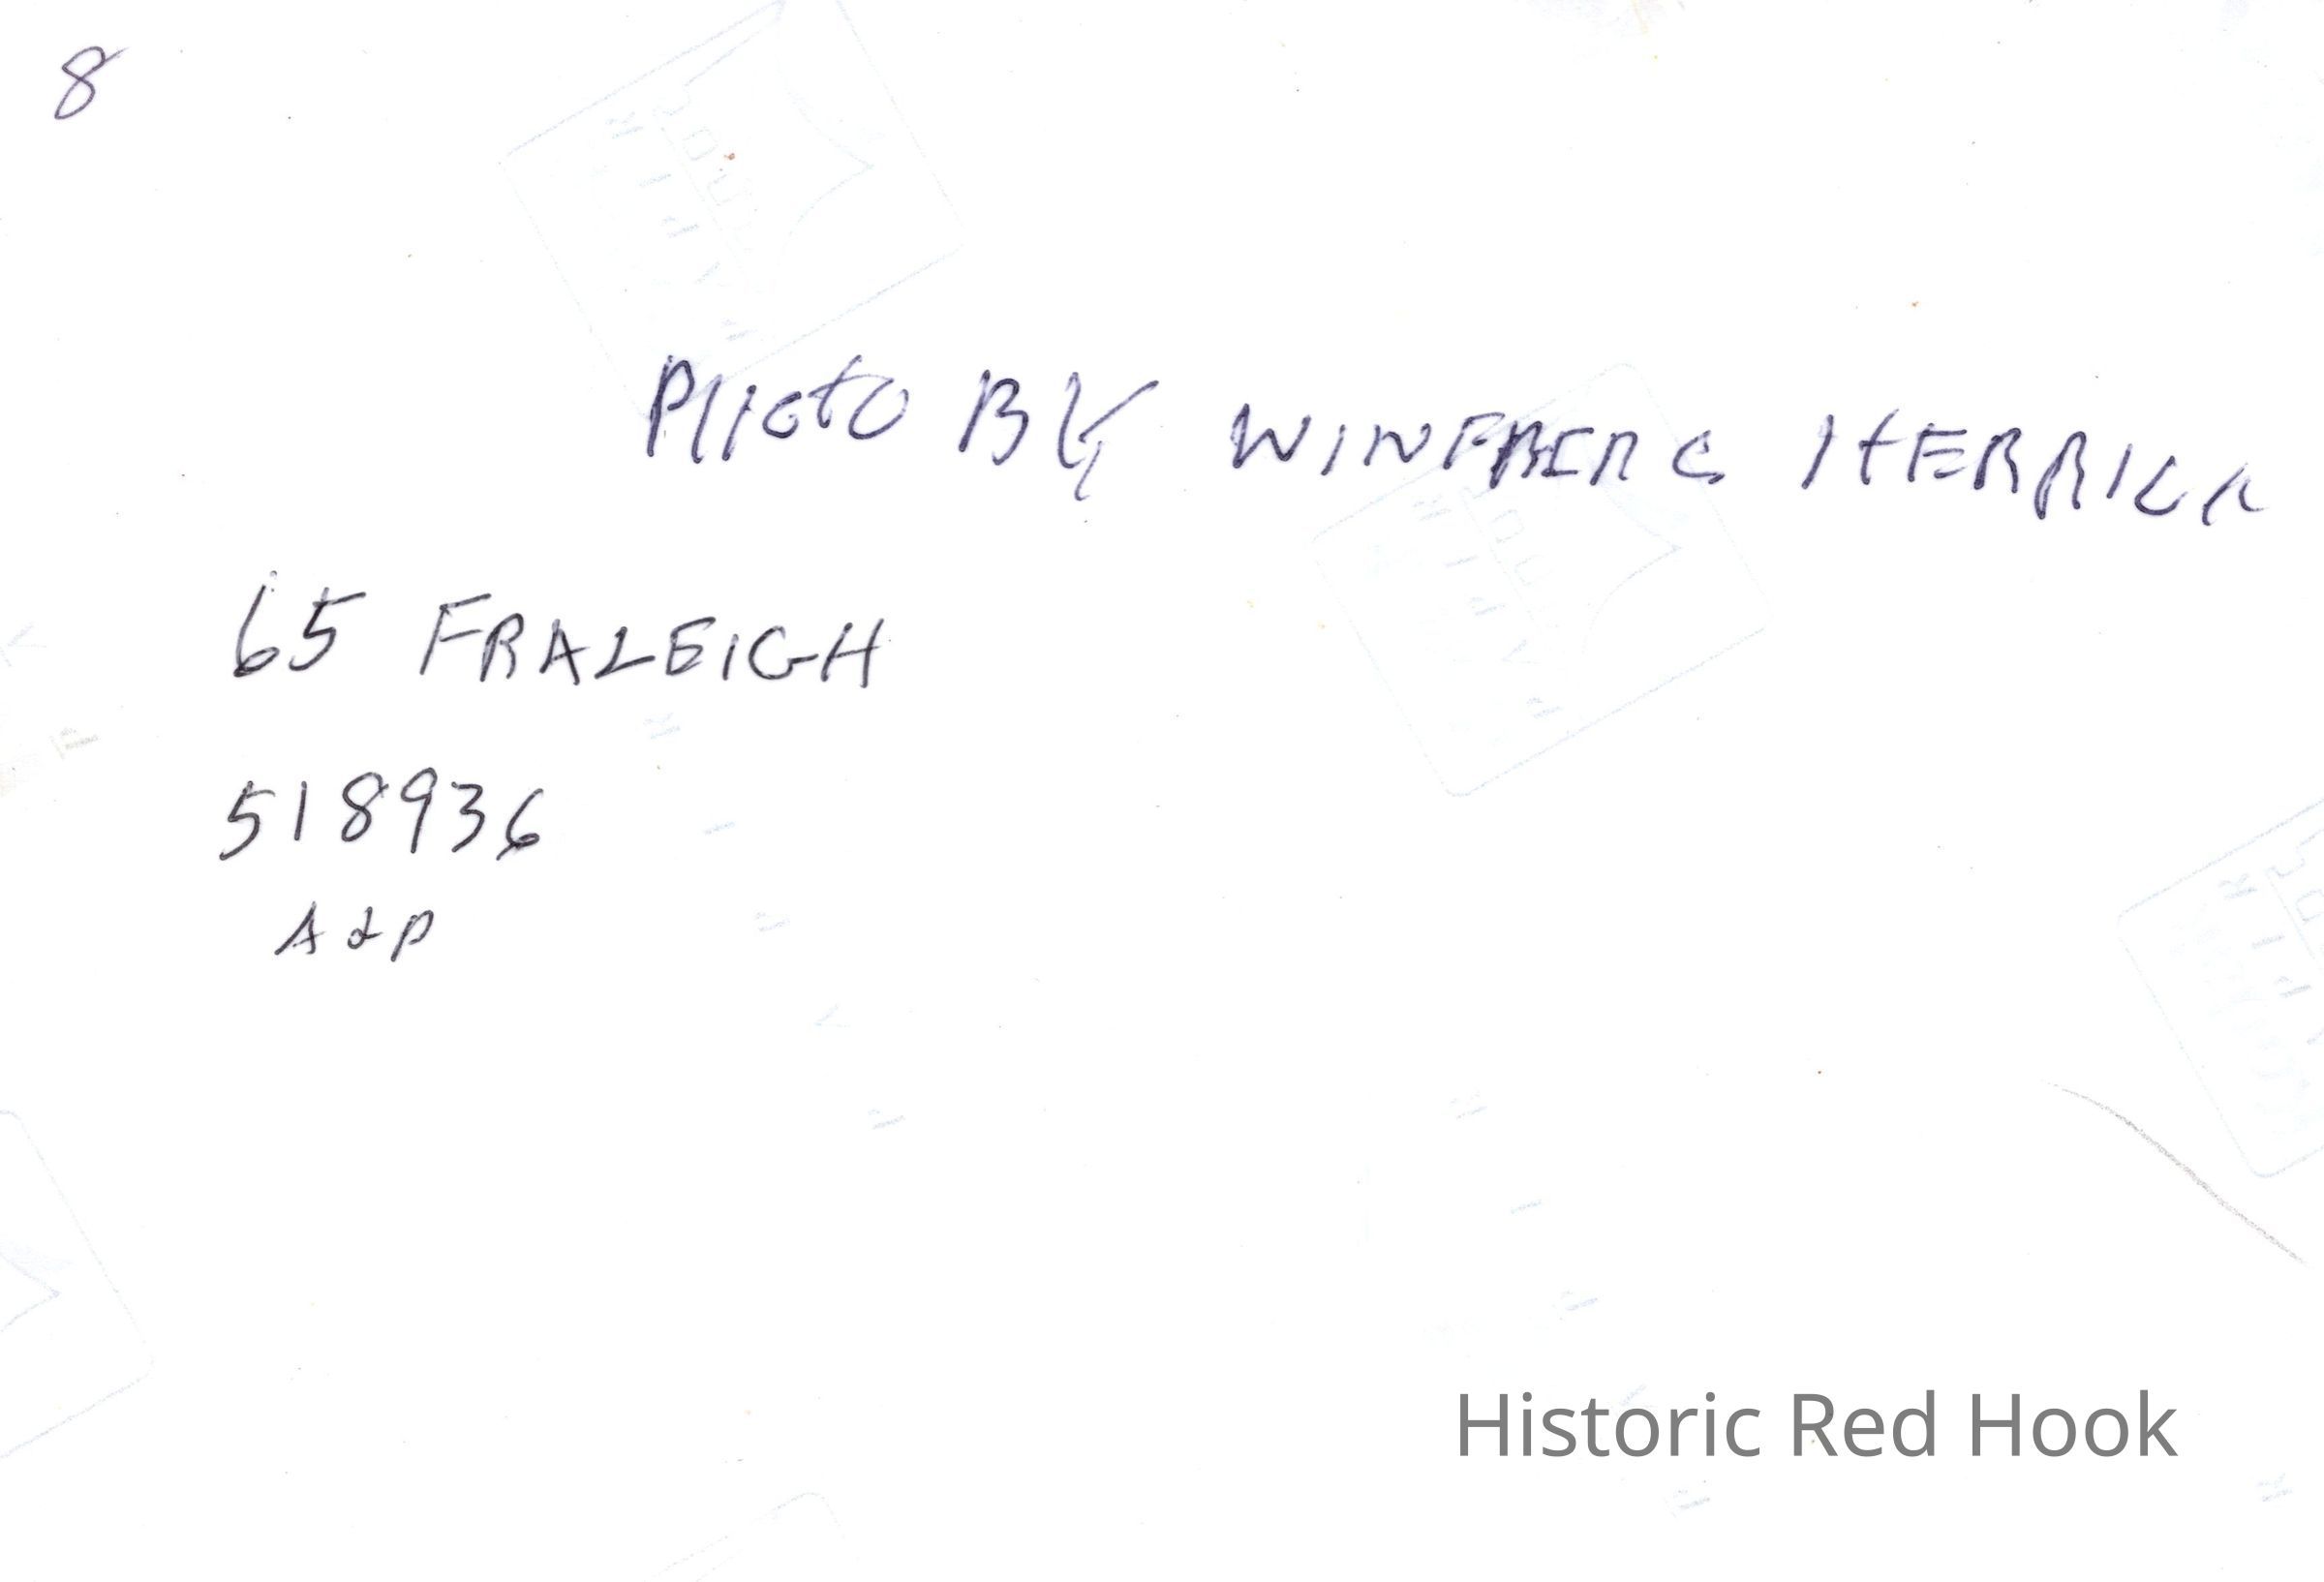 8
PHOTO BY HERRICK
65 FRALEIGH
518936
A & P
Historic Red Hook